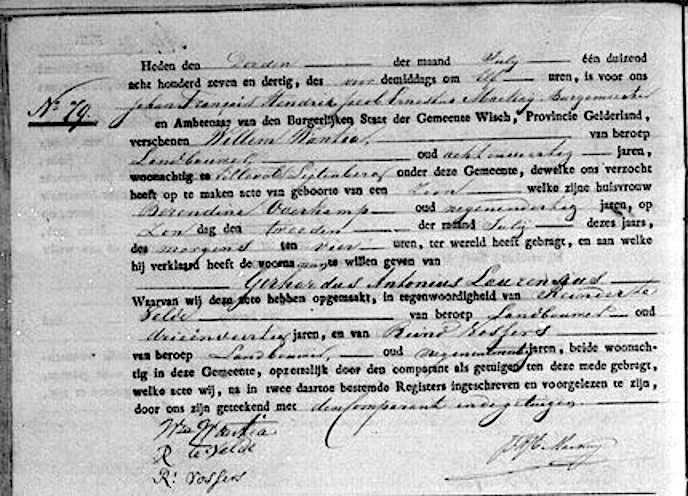 Heden den Derden der maand July één duizend
acht honderd zeven en dertig, des voor demiddags om Elf uren, is voor ons
No. 79.
Hendrik Jacob Ernestus Mackay Burgemeester
en Ambtenaar van den Burgerlijken Staat der Gemeente Wisch, Provincie Gelderland,
verschenen Willem Wantea, van beroep
Landbouwer, oud acht jaren,
woonachtig te onder deze Gemeente, dewelke ons verzocht
heeft op te maken acte van geboorte van een Zoon welke zijne huisvrouw
Berendina Overkamp oud negenendertig jaren, op
Zondag den tweeden der maand July dezes jaars,
des morgens ten vier uren, ter wereld heeft gebragt, en aan welke
hij verklaard heeft de voornamen te willen geven van
Gerhardus Antonius Laurensius
Waarvan wij deze acte hebben opgemaakt, in tegenwoordigheid van Reinder te
Velde van beroep Landbouwer oud
drieenveertig jaren, en van Reind Vossers
van beroep Landbouwer, oud jaren, beide woonach-
tig in deze Gemeente, opzettelijk door den comparant als getuigen ten deze mede gebragt,
welke acte wij, na in twee daartoe bestemde Registers ingeschreven en voorgelezen te zijn,
door ons zijn geteekend met den Comparant en de getuigen
Wm Wantea
R te Velde
R: Vossers
Mackay